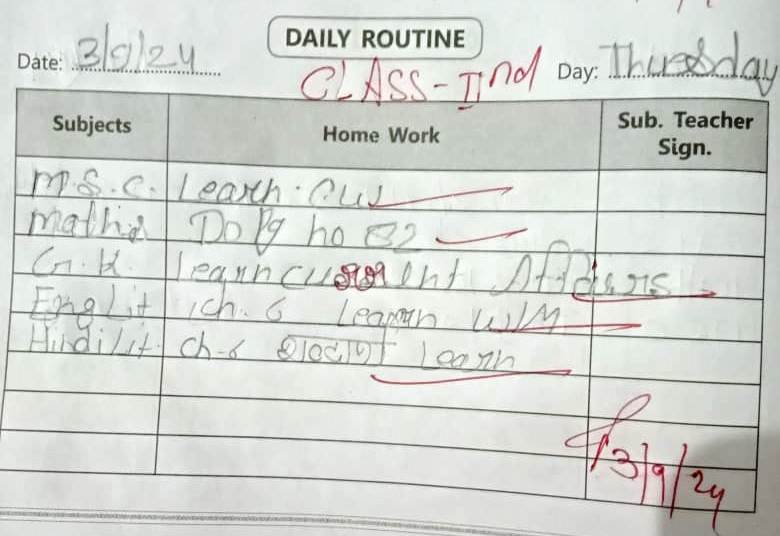 DAILY ROUTINE
Date: 3/9/24
CLASS-IInd
Day: Thuresday
Subjects
Home Work
Sub. Teacher Sign.
M.S.C. Learn. CW
Maths Do Pg no 82
G.K. learn current Affairs
Eng Lit ch. 6 Learn W/M
Hindi Lit. ch-6 शब्दार्थ Learn
3/9/24